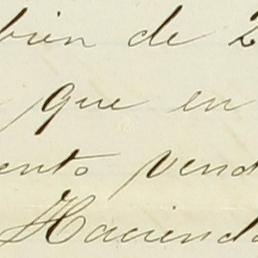 bien de 2
que en
ento vend
Hacienda